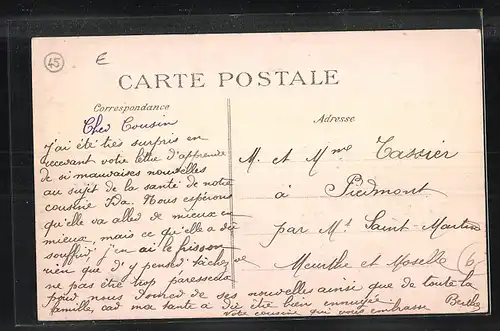 45
E
CARTE POSTALE
Correspondance
Cher Cousin
j'ai été très surpris en
recevant votre lettre d'apprendre
de si mauvaises nouvelles
au sujet de la santé de notre
cousine Ida. Nous espérons
qu'elle va aller de mieux en
mieux, mais ce qu'elle a dû
souffrir j'en ai le frisson
rien que d'y penser tâchez
ne pas être trop paresseuse
pour nous donner de ses nouvelles ainsi que de toute la
famille, car ma tante a dû être bien ennuyée
Votre cousine qui vous embrasse Berthe
Adresse
M. et Mme Tassier
à Piedmont
par Mt Saint-Martin
Meurthe et Moselle
6